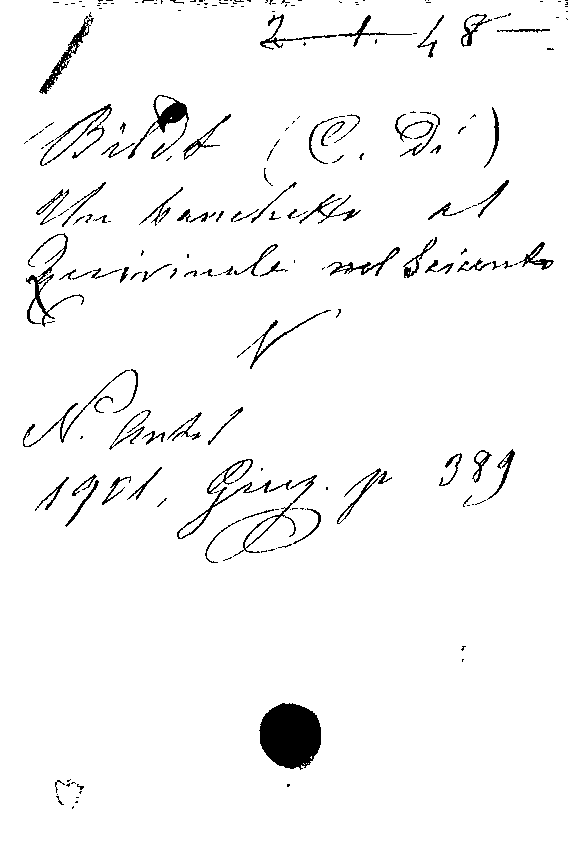 2. 1. 48
Bildt (C. Di)
Un banchetto al
Quirinale nel Seicento
N. Antol
1901, Giug. p 389